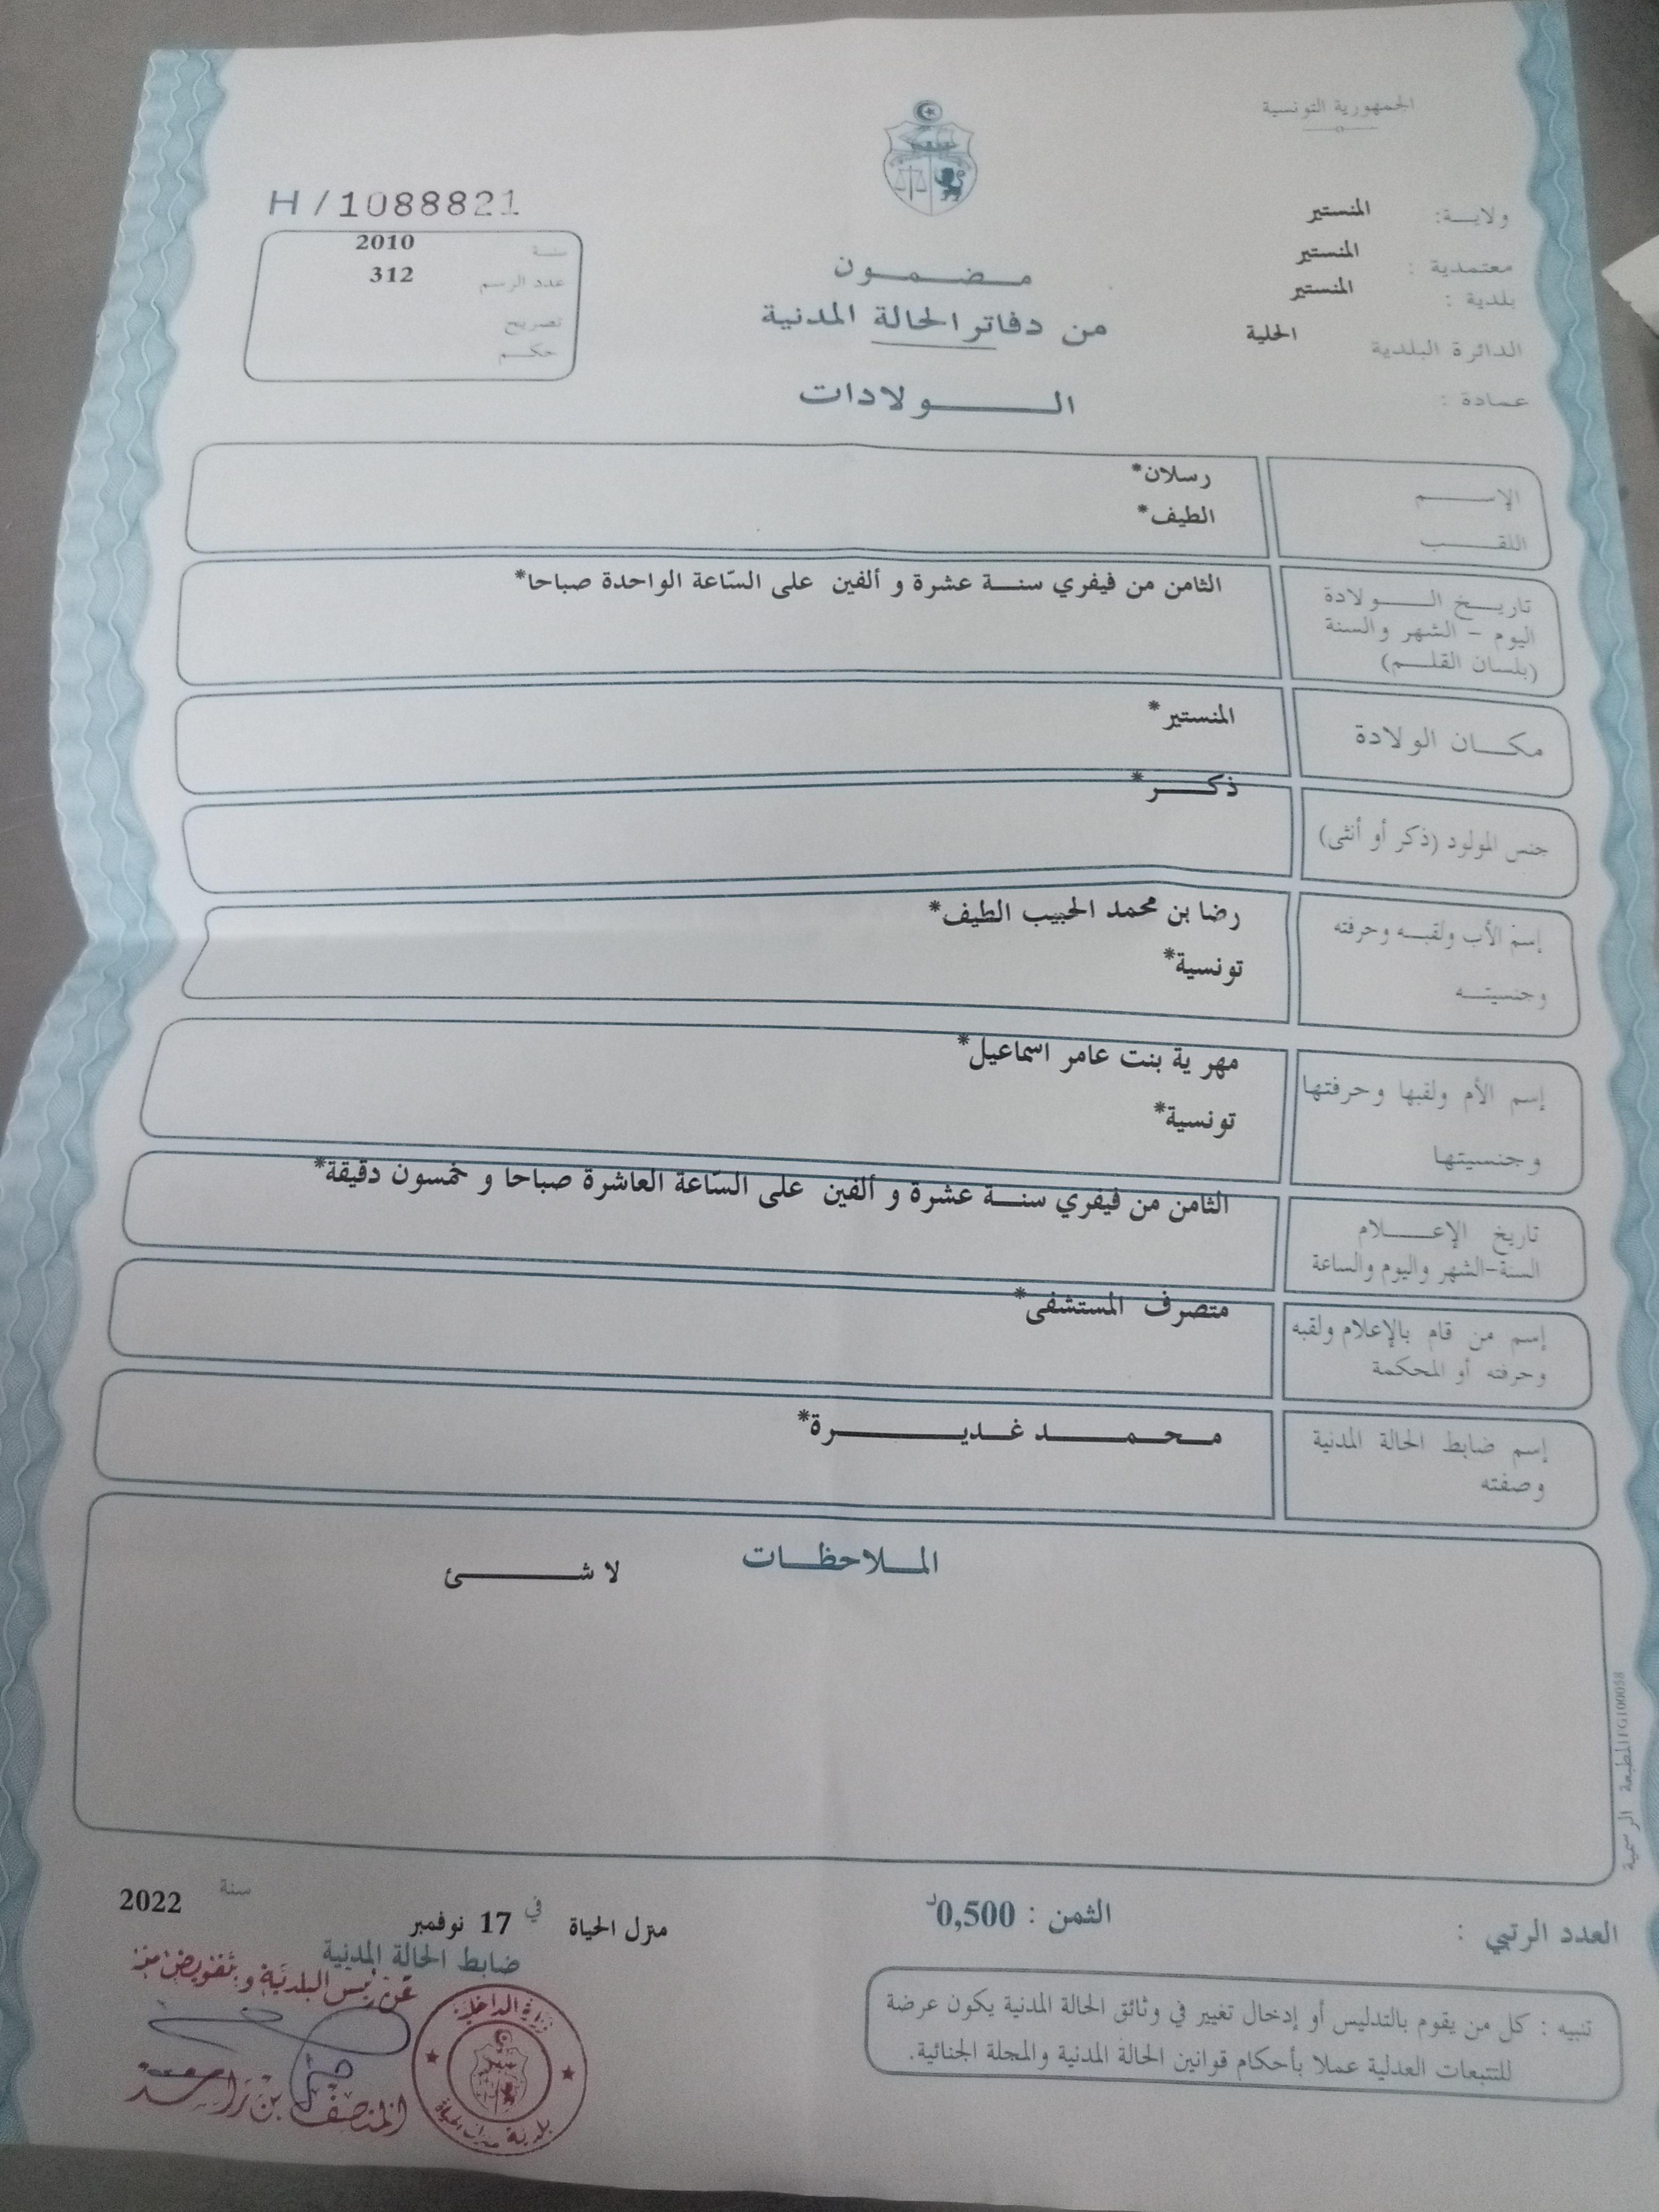 الجمهورية التونسية
ولايــة: المنستير
معتمدية : المنستير
بلدية : المنستير
الدائرة البلدية المحلية
عمادة :
مـضـمـون
من دفاتر الحالة المدنية
الــولادات
H / 1088821
سنة 2010
عدد الرسم 312
تصريح
حكم
الإسم رسلان*
اللقب الطيف*
تاريخ الولادة الثامن من فيفري سنة عشرة و ألفين على السّاعة الواحدة صباحا*
اليوم - الشهر والسنة
(بلسان القلم)
مكان الولادة المنستير*
جنس المولود (ذكر أو أنثى) ذكر*
إسم الأب ولقبه وحرفته رضا بن محمد الحبيب الطيف*
وجنسيته تونسية*
إسم الأم ولقبها وحرفتها مهرية بنت عامر اسماعيل*
وجنسيتها تونسية*
تاريخ الإعلام الثامن من فيفري سنة عشرة و ألفين على السّاعة العاشرة صباحا و خمسون دقيقة*
السنة-الشهر واليوم والساعة
إسم من قام بالإعلام ولقبه متصرف المستشفى*
وحرفته أو المحكمة
إسم ضابط الحالة المدنية محمد غديرة*
وصفته
الملاحظات لا شئ
المطبعة الرسمية FG100058
العدد الرتبي :
الثمن : 0,500د
منزل الحياة في 17 نوفمبر سنة 2022
ضابط الحالة المدنية
عن رئيس البلدية و بتفويض منه
المنصف بن راشد
وزارة الداخلية
بلدية منزل الحياة
تنبيه : كل من يقوم بالتدليس أو إدخال تغيير في وثائق الحالة المدنية يكون عرضة
للتتبعات العدلية عملا بأحكام قوانين الحالة المدنية والمجلة الجنائية.